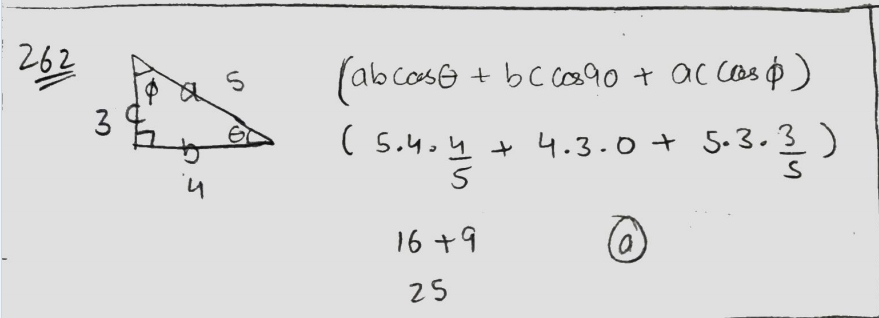 262
ϕ a 5
3 c
θ
b
4
(ab cosθ + bc cos90 + ac cosϕ)
(5.4.4/5 + 4.3.0 + 5.3.3/5)
16+9
25
a